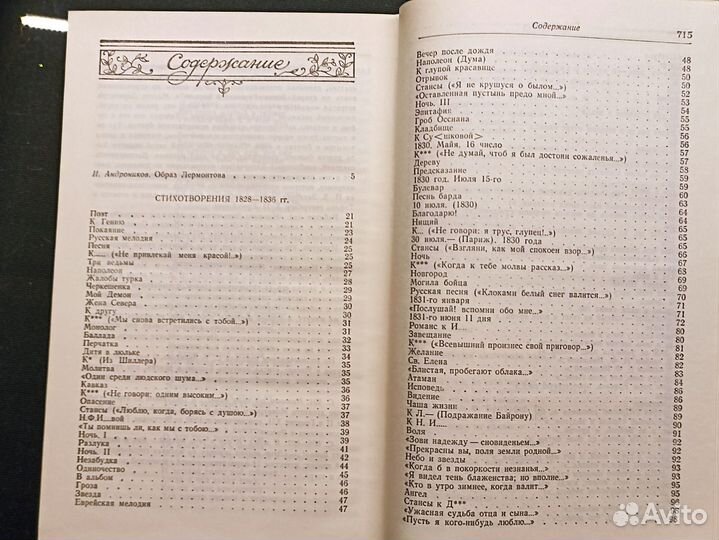 Содержание
И. Андроников. Образ Лермонтова 5
СТИХОТВОРЕНИЯ 1828—1836 гг.
Поэт 21
К Гению 21
Покаяние 23
Русская мелодия 24
Песня 25
К...... («Не привлекай меня красой!..») 25
Три ведьмы
Наполеон
Жалобы турка
Черкешенка
Мой Демон
Жена Севера
К другу
К*** («Мы снова встретились с тобой...»)
Монолог
Баллада
Перчатка
Дитя в люльке
К* (Из Шиллера)
Молитва
«Один среди людского шума...»
Кавказ
К*** «Не говори: одним высоким...»)
Опасение
Стансы («Люблю, когда, борясь с душою...»)
Н.Ф.И....вой
«Ты помнишь ли, как мы с тобою...»
Ночь. I
Разлука
Ночь. II
Незабудка
Одиночество
В альбом
Гроза
Звезда 46
Еврейская мелодия 47
Содержание 715
Вечер после дождя
Наполеон (Дума)
К глупой красавице
Отрывок
Стансы («Я не крушуся о былом...»)
«Оставленная пустынь предо мной...»
Ночь. III
Эпитафия
Гроб Оссиана
Кладбище
К Су<шковой>
1830. Майя. 16 число
К*** («Не думай, чтоб я был достоин сожаленья...»)
Дереву
Предсказание
1830 год. Июля 15-го
Булевар
Песнь барда
10 июля. (1830)
Благодарю!
Нищий
К... («Не говори: я трус, глупец!..»)
30 июля.— (Париж). 1830 года
Стансы («Взгляни, как мой спокоен взор...»)
Ночь
К*** («Когда к тебе молвы рассказ...»)
Новгород
Могила бойца
Русская песня («Клоками белый снег валится...»)
1831-го января
«Послушай! вспомни обо мне...»
1831-го июня 11 дня
Романс к И......
Завещание
К*** («Всевышний произнес свой приговор...»)
Желание
Св. Елена
«Блистая, пробегают облака...»
Атаман
Исповедь
Видение
Чаша жизни
К Л.— (Подражание Байрону)
К Н. И......
Воля
«Зови надежду — сновиденьем...»
«Прекрасны вы, поля земли родной...»
Небо и звезды
«Когда б в покорности незнанья...»
«Я видел тень блаженства; но вполне...»
«Кто в утро зимнее, когда валит...»
Ангел
Стансы к Д***
«Ужасная судьба отца и сына...»
«Пусть я кого-нибудь люблю...»
Avito